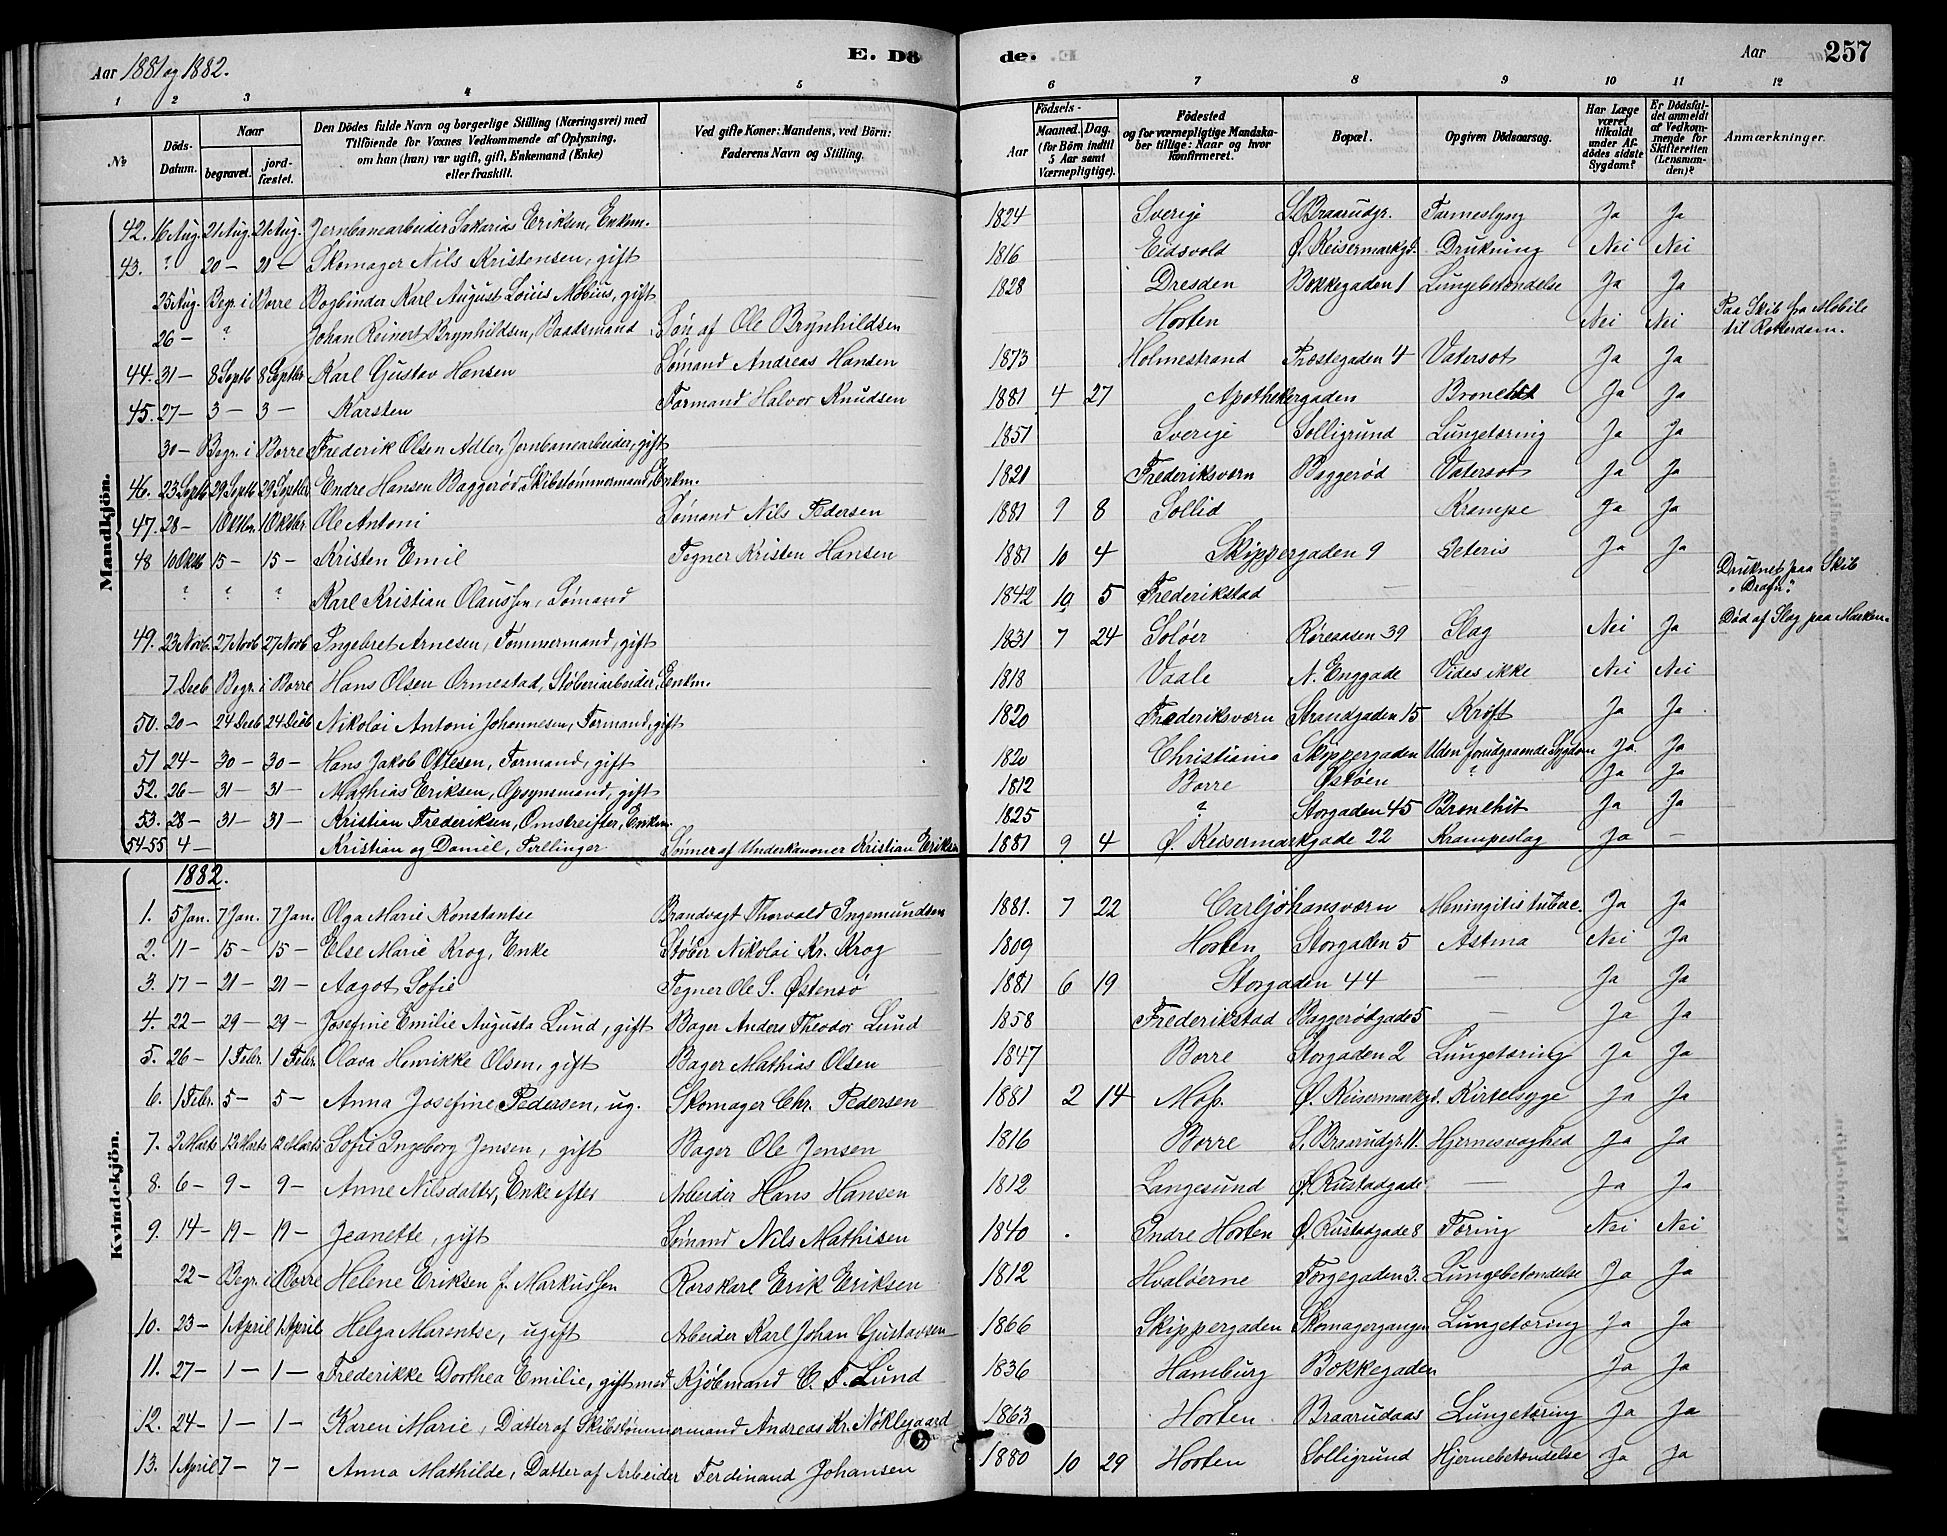 Aar 1881 og 1882. E. Dø de. Aar 257
1 2 3 4 5 6 7 8 9 10 11 12
No Døds-Datum. Naar begravet. jordfæstet. Den Dødes fulde Navn og borgerlige Stilling (Næringsvei) med Tilföiende for Voxnes Vedkommende af Oplysning, om han (hun) var ugift, gift, Enkemand (Enke) eller fraskilt. Ved gifte Koner: Mandens, ved Börn: Faderens Navn og Stilling. Födsels- Aar Maaned. Dag. (for Börn indtil 5 Aar samt Værnepligtige). Födested og for værnepligtige Mandskaber tillige: Naar og hvor konfirmeret. Bopæl. Opgiven Dödsaarsag. Har Læge været tilkaldt under Afdödes sidste Sygdom? Er Dödsfaldet anmeldt af Vedkommende for Skifteretten (Lensmanden)? Anmærkninger.
Mandkjön.
42. 16 Aug. 21 Aug. 21 Aug. Jernbanearbeider Sakarias Eriksen, Enkm. 1824 Sverige S. Braarudgr. Tarmeslyng Ja Ja
43. ? 20 – 21 – Skomager Nils Kristensen, gift 1816 Eidsvold Ø. Keisermarkgd. Drukning Nei Nei
25 Aug. Begr. i Borre Bogbinder Karl August Louis Møbius, gift 1828 Dresden Bakkegaden 1 Lungebetændelse Ja Ja
26 – ? Johan Reinert Brynhildsen, Baadsmand Søn af Ole Brynhildsen Horten Nei Nei Paa Skib fra Mobile til Rotterdam.
44. 31 – 8 Septb 8 Septbr Karl Gustav Hansen Sømand Andreas Hansen 1873 Holmestrand Præstegaden 4 Vatersot Ja Ja
45. 27 – 3 – 3 – Karsten Formand Halvor Knudsen 1881 4 27 Apothekergaden Ja Ja
30 – Begr. i Borre Frederik Olsen Adler, Jernbanearbeider, gift 1851 Sverige Solligrund Lungetæring Ja Ja
46. 23 Septb 29 Septb 29 Septbr Endre Hansen Baggerød, Skibstømmermand, Enkm. 1821 Frederiksværn Baggerød Vatersot Ja Ja
47. 28 – 1 Oktbr. 1 Oktbr Ole Antoni Sømand Nils Pedersen 1881 9 8 Sollid Krampe Ja Ja
48 10 Oktb 15 – 15 – Kristen Emil Tegner Kristen Hansen 1881 10 4 Skippergaden 9 Ja Ja
? ? ? Karl Kristian Olaussen, Sømand 1842 10 5 Frederikstad – Druknet paa Skib „Drafn“.
49. 23 Novb. 27 Novb 27 Novb Ingebret Arnesen, Tømmermand, gift 1831 7 24 Soløer Røreaasen 39 Slag Nei Ja Død af Slag paa Marken.
7 Decb Begr. i Borre Hans Olsen Ormestad, Støberiarbeider, Enkm. 1818 Vaale N. Enggade Vides ikke Nei Nei
50. 20 – 24 Decb 24 Decb Nikolai Antoni Johannesen, Formand, gift 1820 Frederiksværn Strandgaden 15 Kræft Ja Ja
51 24 – 30 – 30 – Hans Jakob Ottesen, Formand, gift 1820 Christiania Skippergaden Uden forudgaaende Sygdom Ja Ja
52. 26 – 31 – 31 – Mathias Eriksen, Opsynsmand, gift 1812 Borre Østøen ? Ja Ja
53. 28 – 31 – 31 – Kristian Frederiksen, Omstreifer, Enkm. 1825 ? Storgaden 45 Bronchit Ja Ja
54-55 4 – Kristian og Daniel, Tvillinger Sønner af Underkanoner Kristian Eriksen 1881 9 4 Ø. Keisermarkgade 22 Krampeslag Ja –
Kvindekjön.
1882.
1. 5 Jan. 7 Jan. 7 Jan. Olga Marie Konstantse Brandvagt Thorvald Ingemundsen 1881. 7 22 Carljohansværn Meningitis tuberc. Ja Ja
2. 11 – 15 – 15 – Else Marie Krog, Enke Støber Nikolai Kr. Krog 1809 Horten Storgaden 5 Astma Nei Ja
3. 17 – 21 – 21 – Aagot Sofie Tegner Ole S. Østensø 1881 6 19 Storgaden 44 – Ja Ja
4. 22 – 29 – 29 – Josefine Emilie Augusta Lund, gift Bager Anders Theodor Lund 1858 Frederikstad Baggerødgade 5 – Ja Ja
5. 26 – 1 Febr. 1 Febr. Olava Henrikke Olsen, gift Bager Mathias Olsen 1847 Borre Storgaden 2 Lungetæring Ja Ja
6. 1 Febr. 5 – 5 – Anna Josefine Pedersen, ug. Skomager Chr. Pedersen 1881 2 14 Moss. Ø. Keisermarkgd. Kirtelsyge Ja Ja
7. 2 Marts 12 Marts 12 Marts Sofie Ingeborg Jensen, gift Bager Ole Jensen 1816 Borre S. Braarudgr. 11. Hjernesvaghed Ja Ja
8. 6 – 9 – 9 – Anne Nilsdatter, Enke efter Arbeider Hans Hansen 1812 Langesund Ø. Rustadgade – Ja Ja
9. 14 – 19 – 19 – Jeanette, gift Sømand Nils Mathisen 1840 Indre Horten Ø. Rustadgade 8 Tæring Nei Nei
22 – Begr. i Borre Helene Eriksen f. Markussen Rorskarl Erik Eriksen 1812 Hvaløerne Torvegaden 3. Lungebetændelse Ja Ja
10. 23 – 1 April 1 April Helga Marentse, ugift Arbeider Karl Johan Gustavsen 1866 Skippergaden Skomagergangen Lungetæring Ja Ja
11. 27 – 1 – 1 – Frederikke Dorthea Emilie, gift med Kjøbmand C. F. Lund 1836 Hamburg Bakkegaden Ja Ja
12. 24 – 1 – 1 – Karen Marie, Datter af Skibstømmermand Andreas Kr. Nøklegaard 1863 Horten Braarudaas Lungetæring Ja Ja
13. 1 April 7 – 7 – Anna Mathilde, Datter af Arbeider Ferdinand Johansen 1880 10 29 Horten Solligrund Hjernebetændelse Ja Ja